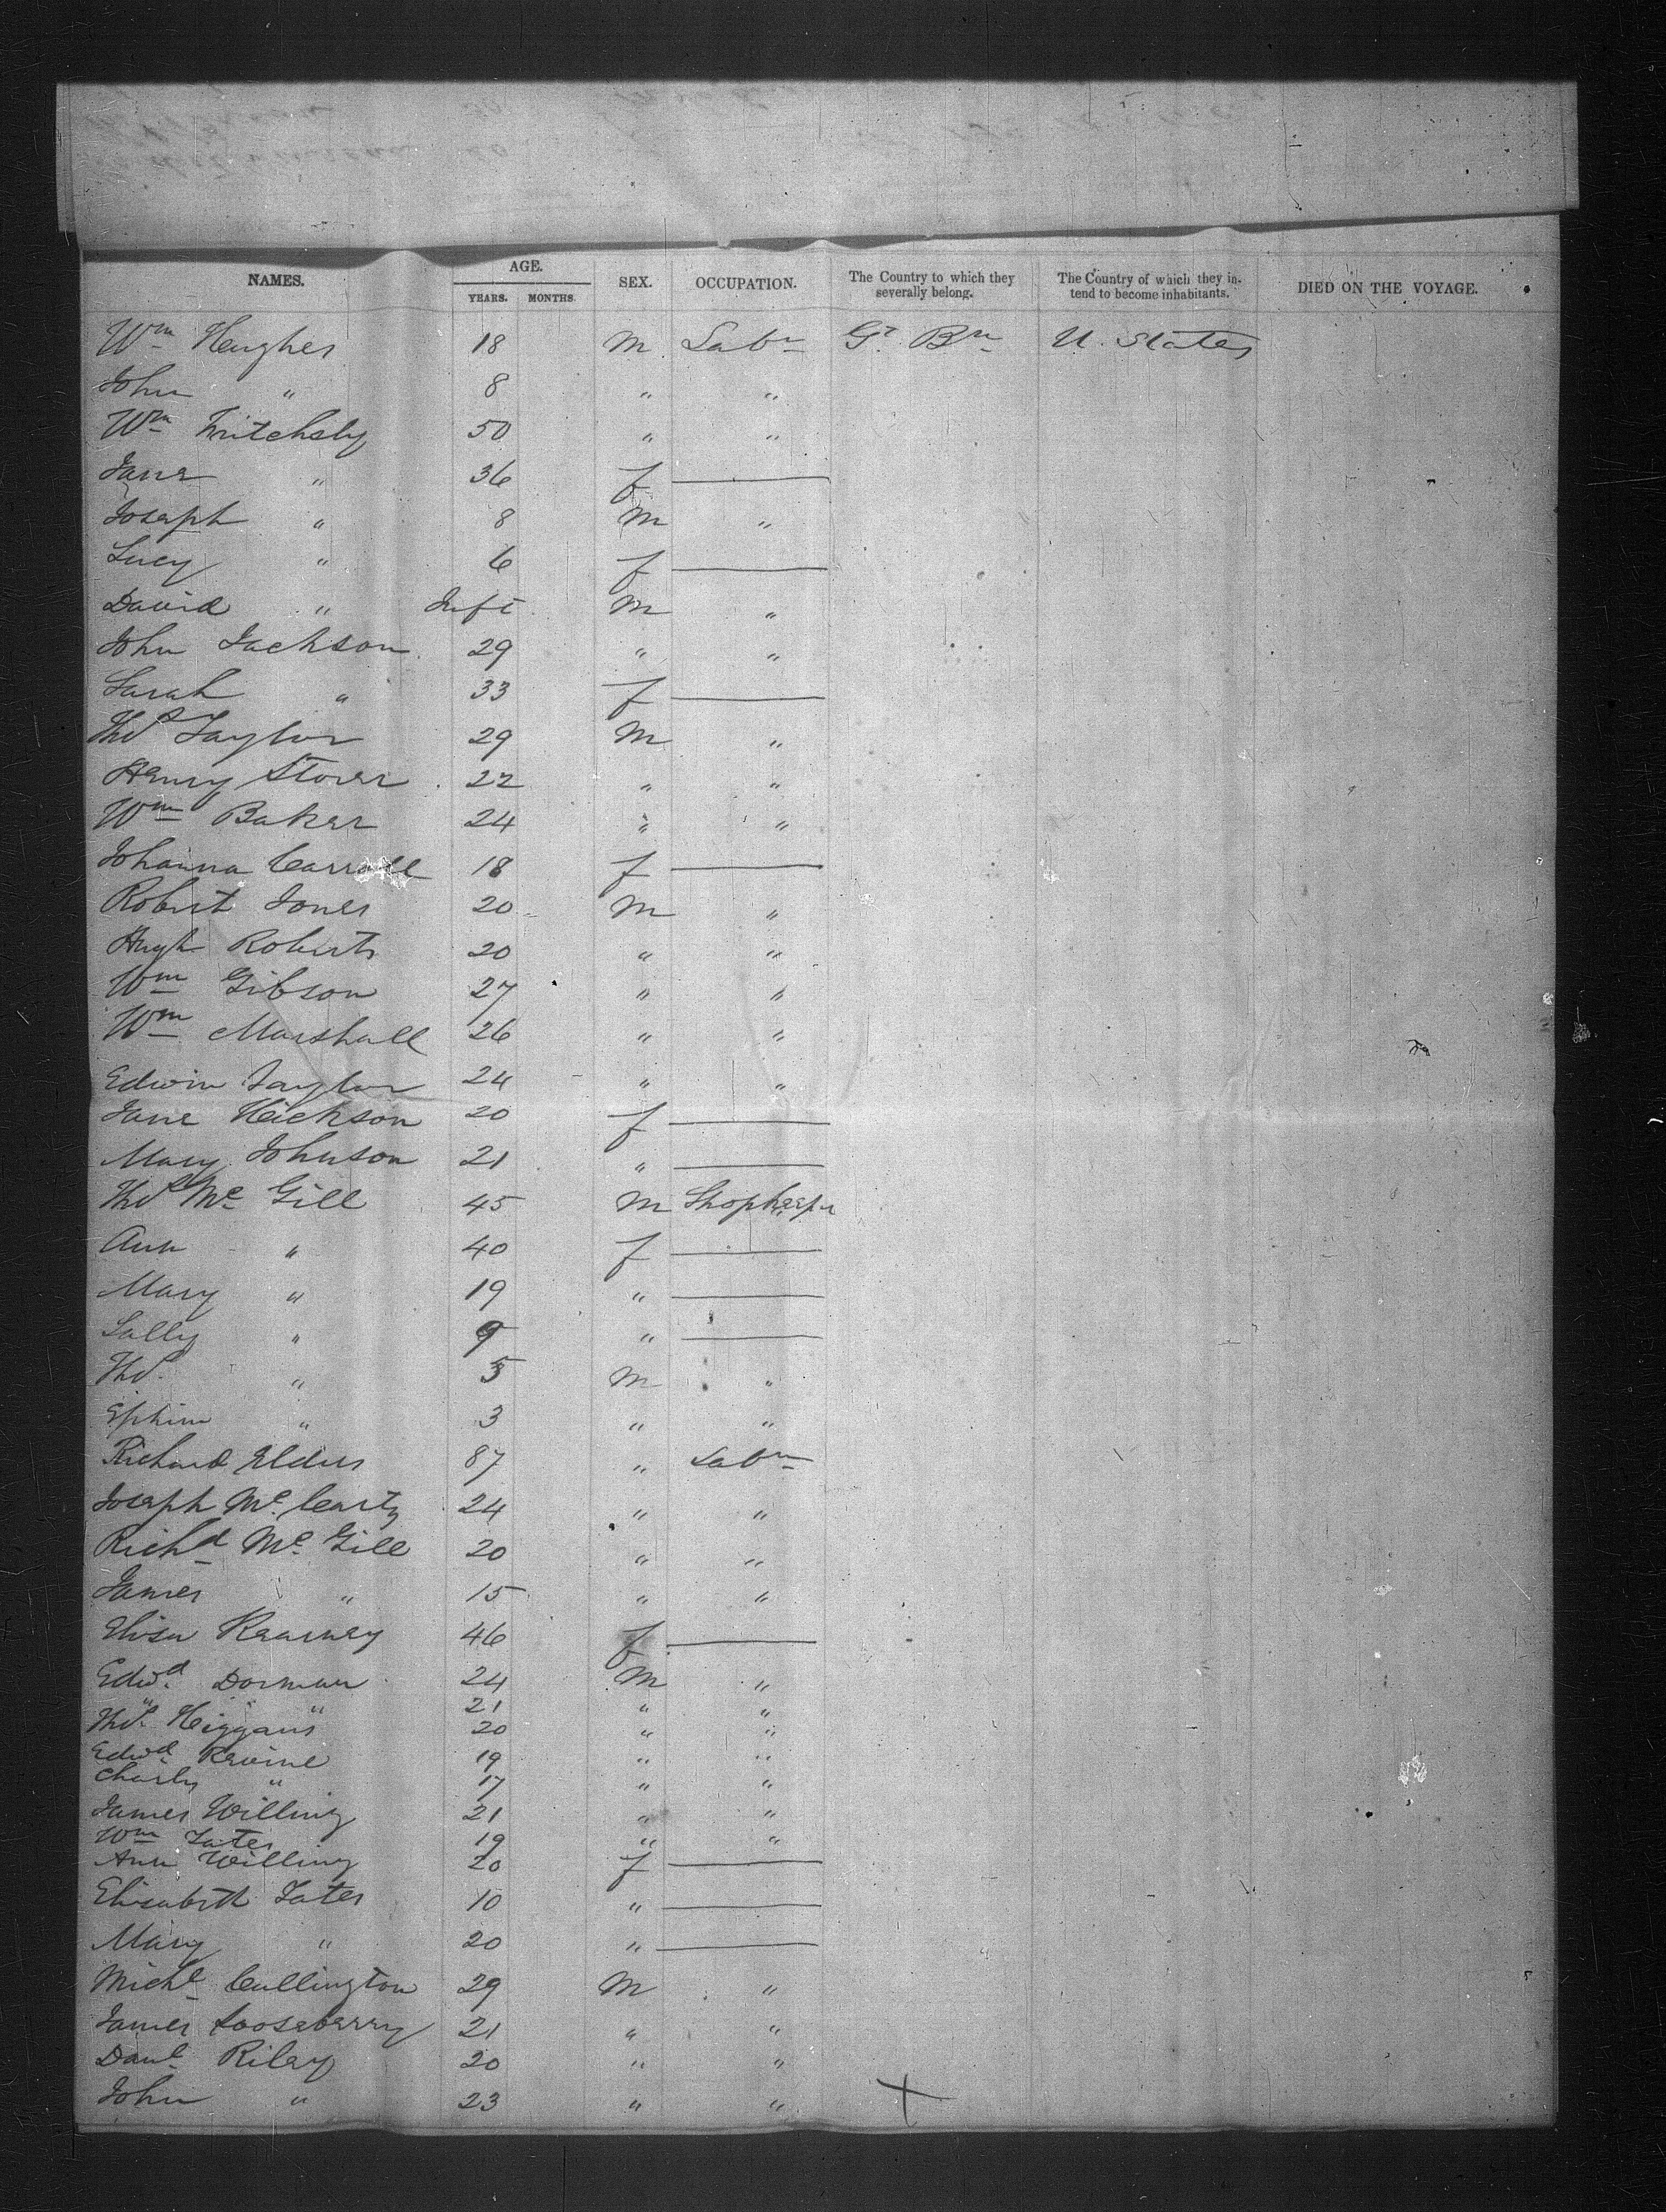 NAMES. AGE. YEARS. MONTHS. SEX. OCCUPATION. The Country to which they severally belong. The Country of which they intend to become inhabitants. DIED ON THE VOYAGE.
Wm Hughes 18 M Labr Gt Bn U. States
John " 8 " "
Wm 50 " "
Jane " 36 f
Joseph " 8 M "
Lucy " 6 f
David " Inft M "
John Jackson 29 " "
Sarah " 33 f
Thos Taylor 29 M "
Henry Storer 22 " "
Wm Baker 24 " "
Johanna Carroll 18 f
Robert Jones 20 M "
Hugh Roberts 20 " "
Wm Gibson 27 " "
Wm Marshall 26 " "
Edwin Taylor 24 " "
Jane Hickson 20 f
Mary Johnson 21 "
Thos Mc Gill 45 M Shopkeepr
Ann " 40 f
Mary " 19 "
Sally " 9 "
Thos " 5 M "
Ephim " 3 " "
Richard Elders 87 " Labr
Joseph Mc Carty 24 " "
Richd Mc Gill 20 " "
James " 15 " "
Elisa Kearney 46 f
Edwd Dorman 24 M "
" " " 21 " "
Thos Higgans 20 " "
Edwd 19 " "
Charly " 17 " "
James Willing 21 " "
Wm Tates 19 " "
Ann Willing 20 f
Elisabeth Tates 10 "
Mary " 20 "
Michl Cullington 29 M "
James Looseberry 21 " "
Danl Riley 20 " "
John " 23 " "